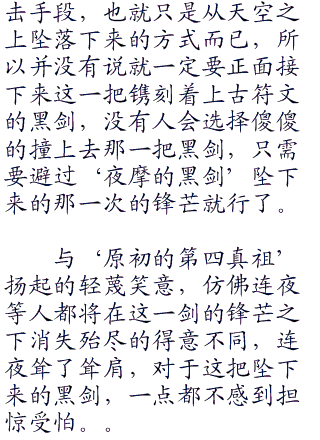 击手段，也就只是从天空之
上坠落下来的方式而已，所
以并没有说就一定要正面接
下来这一把镌刻着上古符文
的黑剑，没有人会选择傻傻
的撞上去那一把黑剑，只需
要避过‘夜摩的黑剑’坠下
来的那一次的锋芒就行了。
与‘原初的第四真祖’
扬起的轻蔑笑意，仿佛连夜
等人都将在这一剑的锋芒之
下消失殆尽的得意不同，连
夜耸了耸肩，对于这把坠下
来的黑剑，一点都不感到担
惊受怕。。